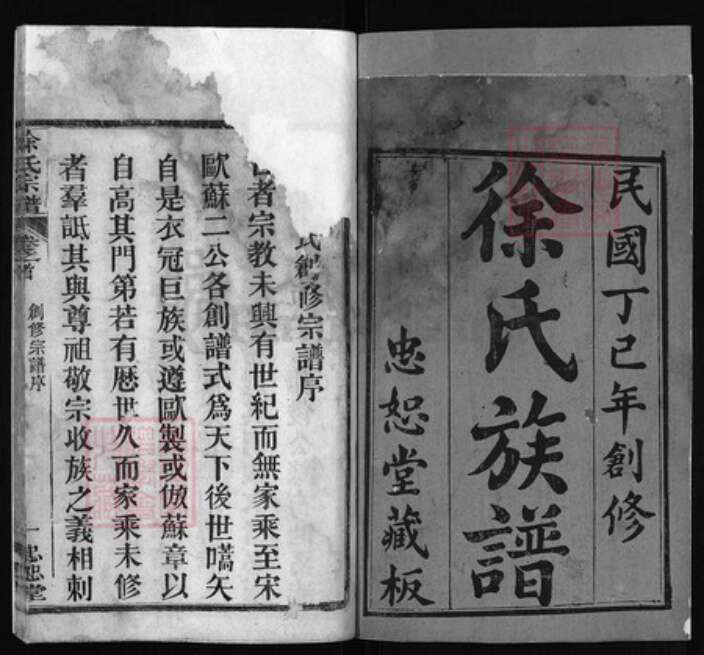 民國丁巳年創修
徐氏族譜
忠恕堂藏板
氏創修宗譜序
者宗教未興有世紀而無家乘至宋
歐蘇二公各創譜式爲天下後世嚆矢
自是衣冠巨族或遵歐製或倣蘇章以
自高其門第若有厯世久而家乘未修
者羣詆其與尊祖敬宗收族之義相刺
徐氏宗譜
卷之首
創修宗譜序
一
忠恕堂